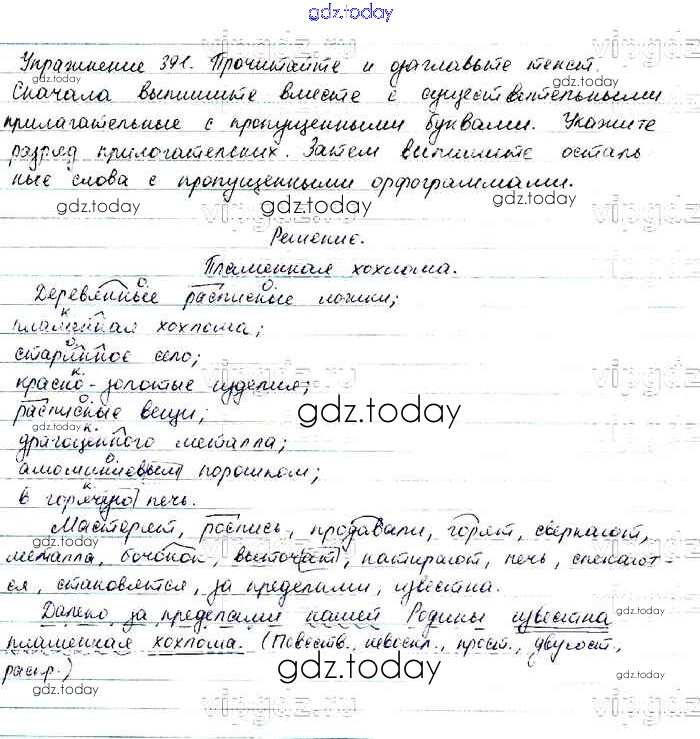 gdz.today
Упражнение 391. Прочитайте и озаглавьте текст.
Сначала выпишите вместе с существительными
прилагательные с пропущенными буквами. Укажите
разряд прилагательных. Затем выпишите осталь
ные слова с пропущенными орфограммами.
Решение.
Пламенная хохлома.
Деревянные расписные ложки;
пламенная хохлома;
старинное село;
красно-золотые изделия;
расписные вещи;
драгоценного металла;
алюминиевым порошком;
в горячую печь.
Мастерят, роспись, продавали, горят, сверкают,
металла, бочонок, выточат, натирают, печь, спекают-
ся, становятся, за пределами, известна.
Далеко за пределами нашей Родины известна
пламенная хохлома. (Повеств., невоскл., прост., двусост.,
распр.)